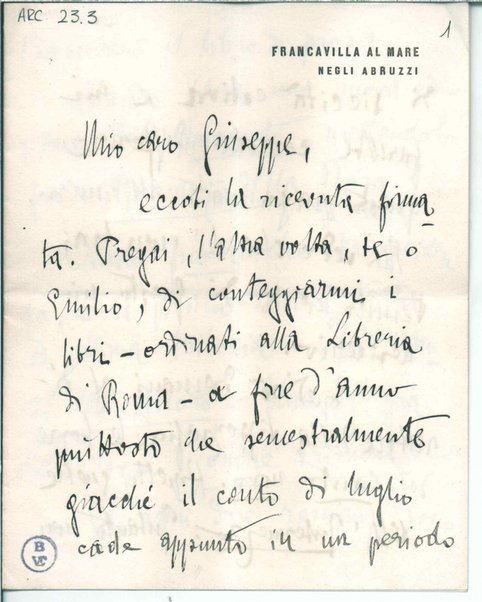 ARC 23.3
1
FRANCAVILLA AL MARE
NEGLI ABRUZZI
Mio caro Giuseppe,
eccoti la ricevuta firma-
ta. Pregai, l'altra volta, te o
Emilio, di conteggiarmi i
libri - ordinati alla Libreria
di Roma - a fine d'anno
piuttosto che semestralmente
giacché il conto di luglio
cade appunto in un periodo
B
VE